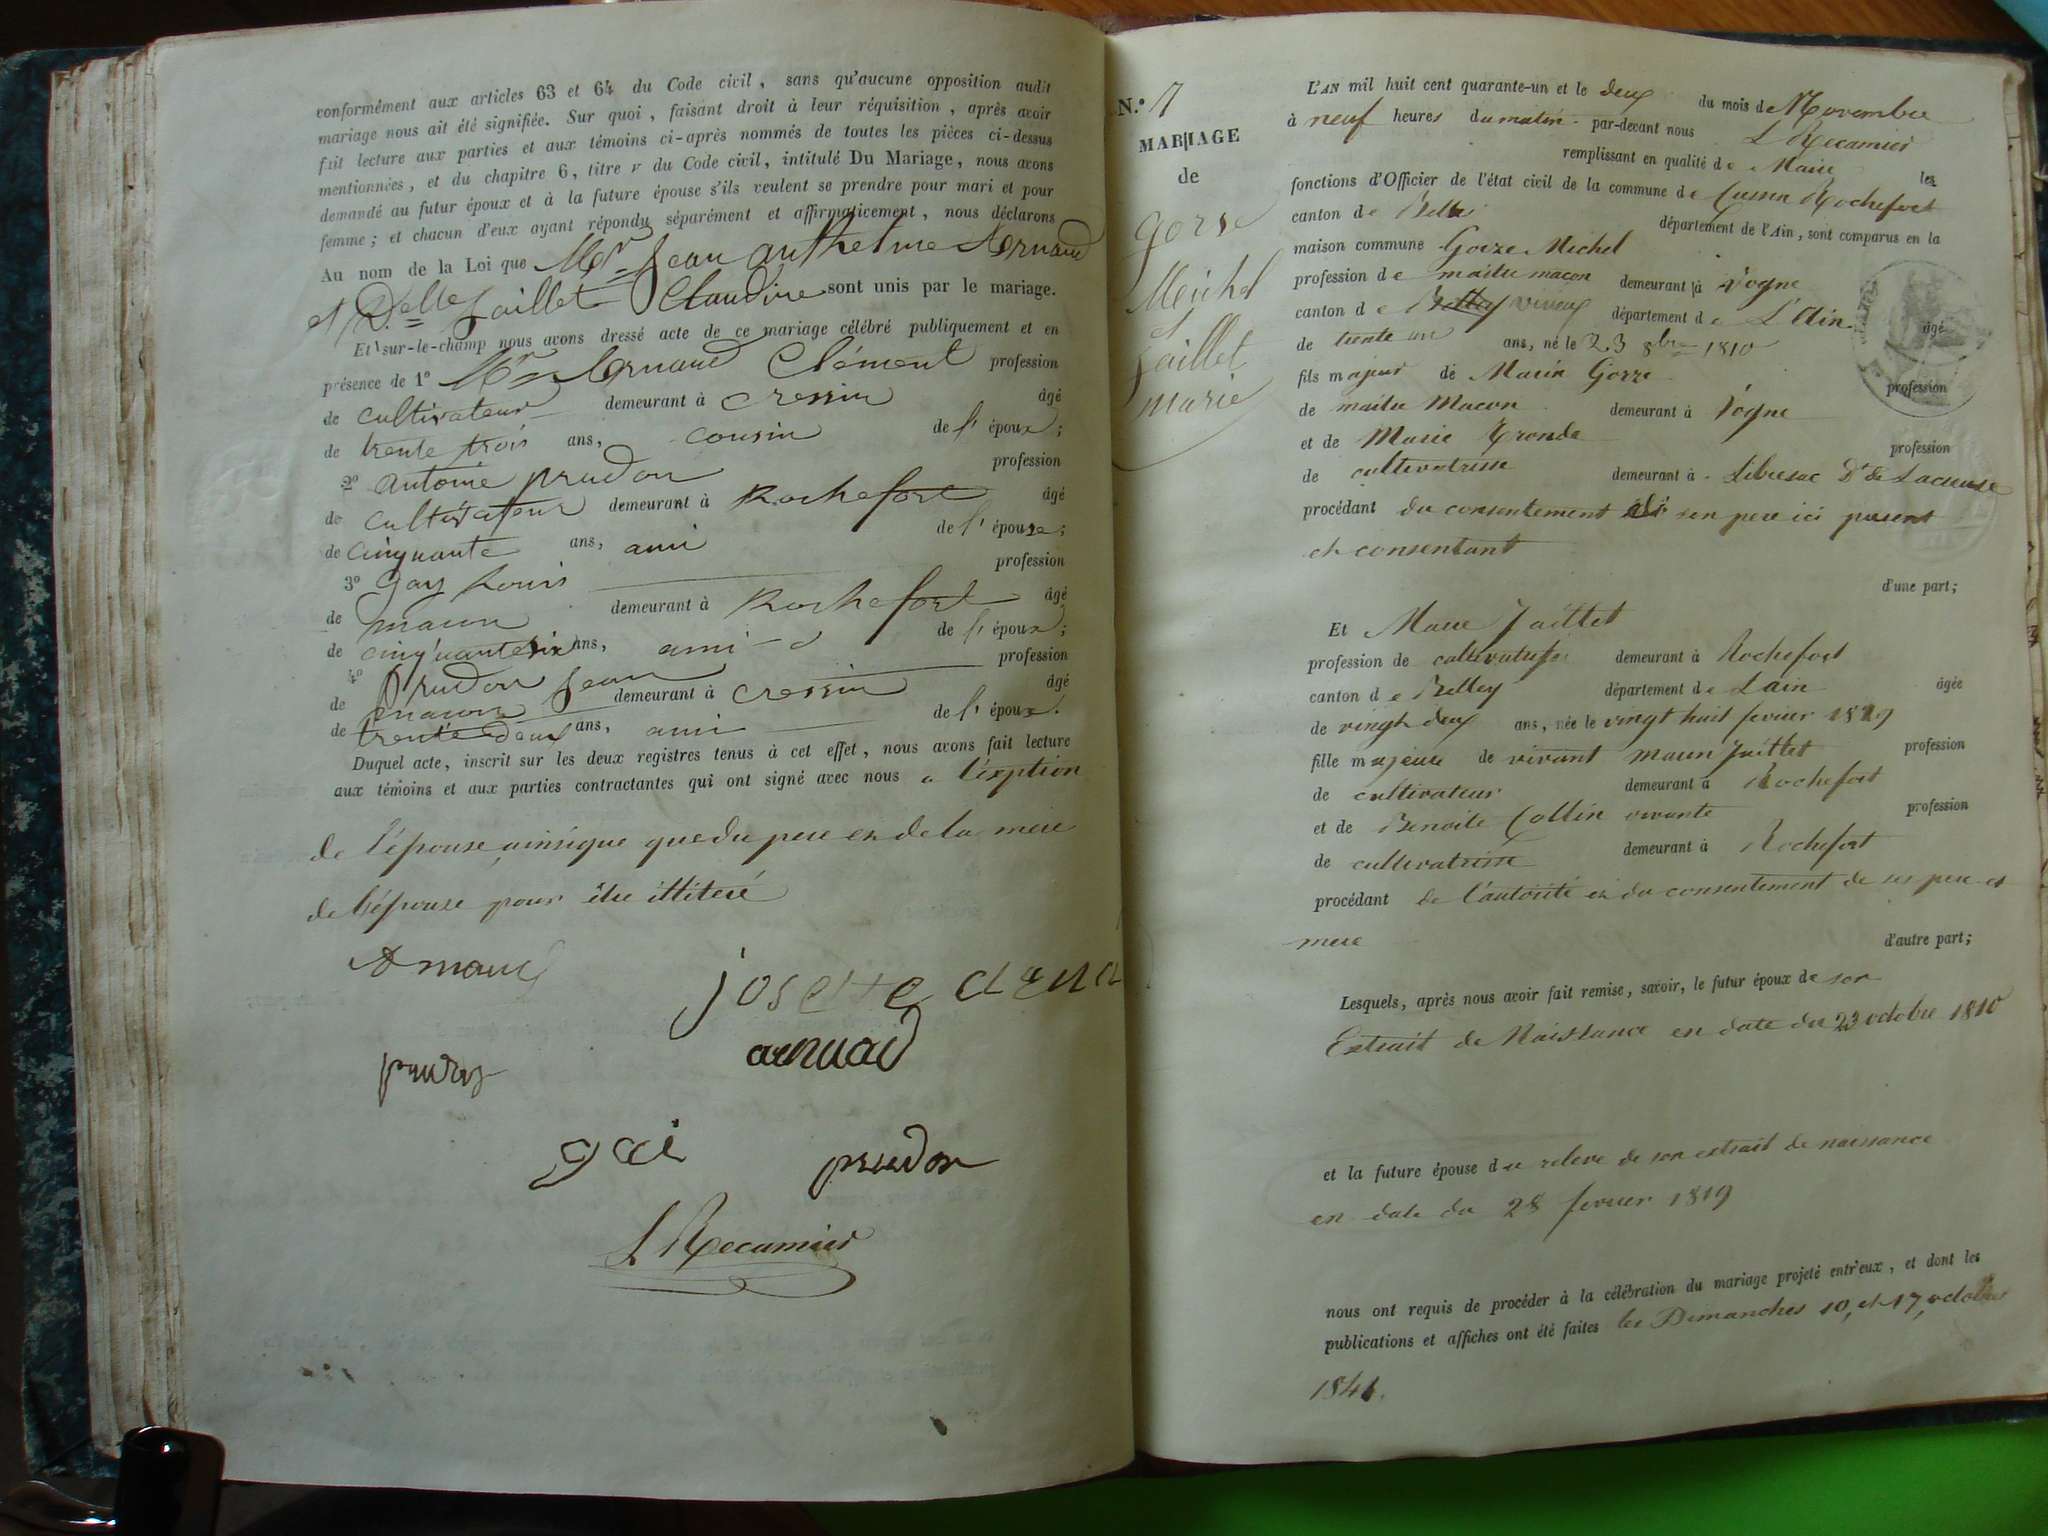 conformément aux articles 63 et 64 du Code civil, sans qu'aucune opposition audit
mariage nous ait été signifiée. Sur quoi, faisant droit à leur réquisition, après avoir
fait lecture aux parties et aux témoins ci-après nommés de toutes les pièces ci-dessus
mentionnées, et du chapitre 6, titre v du Code civil, intitulé Du Mariage, nous avons
demandé au futur époux et à la future épouse s'ils veulent se prendre pour mari et pour
femme; et chacun d'eux ayant répondu séparément et affirmativement, nous déclarons
Au nom de la Loi que Mr Jean anthelme Arnaud
et Delle Jaillet Claudine sont unis par le mariage.
Et sur-le-champ nous avons dressé acte de ce mariage célébré publiquement et en
présence de 1º Mr Arnaud Clément profession
de cultivateur demeurant à Cressin âgé
de trente trois ans, cousin de l'époux;
2º antoine prudon profession
de cultivateur demeurant à Rochefort âgé
de cinquante ans, ami de l'épouse;
3º Gay Louis profession
de macon demeurant à Rochefort âgé
de cinquante six ans, ami de l'époux;
4º Prudon Jean profession
de macon demeurant à Cressin âgé
de trente deux ans, ami de l'époux.
Duquel acte, inscrit sur les deux registres tenus à cet effet, nous avons fait lecture
aux témoins et aux parties contractantes qui ont signé avec nous a l'éxption
de l'épouse ainsique que du pere et de la mere
de l'épouse pour être illiteré
Arnaud
josette
arnuad
gai
prudon
L Recamier
N.º 7
MARIAGE
de
Gorse
Meichel
et
Jaillet
marie
L'AN mil huit cent quarante-un et le deux du mois de Novembre
à neuf heures du matin par-devant nous L Recamier
remplissant en qualité de Maire les
fonctions d'Officier de l'état civil de la commune de Cressin Rochefort
canton de Belle département de l'Ain, sont comparus en la
maison commune Gorze Michel
profession de maitre macon demeurant à Vogne
canton de Belley département de L'Ain âgé
de trente un ans, né le 23 8bre 1810
fils majeur de Marin Gorze profession
de maitre Macon demeurant à Vogne
et de Marie Tronde profession
de cultivatrisse demeurant à
procédant du consentement de son pere ici present
et consentant
d'une part;
Et Marie Jaillet
profession de cultivatrisse demeurant à Rochefort
canton de Belley département de Lain âgée
de vingt deux ans, née le vingt huit fevrier 1819
fille majeure de vivant Jaillet profession
de cultivateur demeurant à Rochefort
et de Benoite Collin vivante profession
de cultivatrisse demeurant à Rochefort
procédant de l'autorité et du consentement de ses pere et
mere d'autre part;
Lesquels, après nous avoir fait remise, savoir, le futur époux de son
Extrait de Naissance en date du 23 octobre 1810
et la future épouse du releve de son extrait de naissance
en date du 28 fevrier 1819
nous ont requis de procéder à la célébration du mariage projeté entr'eux, et dont les
publications et affiches ont été faites les Dimanches 10, et 17, octobre
1841.